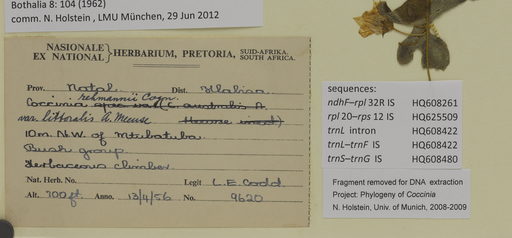 Bothalia 8: 104 (1962)
comm. N. Holstein , LMU München, 29 Jun 2012
NASIONALE EX NATIONAL HERBARIUM, PRETORIA, SUID-AFRIKA, SOUTH AFRICA.
Prov. Natal Dist. Hlabisa
rehmannii Cogn.
Coccinia
var. littoralis A. Meeuse
10m. N.W. of Mtubatuba
Bush group
Herbaceous climber
Nat. Herb. No. Legit L.E. Codd
Alt. 700 ft. Anno. 13/4/56 No. 9620
sequences:
ndhF–rpl 32R IS HQ608261
rpl 20–rps 12 IS HQ625509
trnL intron HQ608422
trnL–trnF IS HQ608422
trnS–trnG IS HQ608480
Fragment removed for DNA extraction
Project: Phylogeny of Coccinia
N. Holstein, Univ. of Munich, 2008-2009